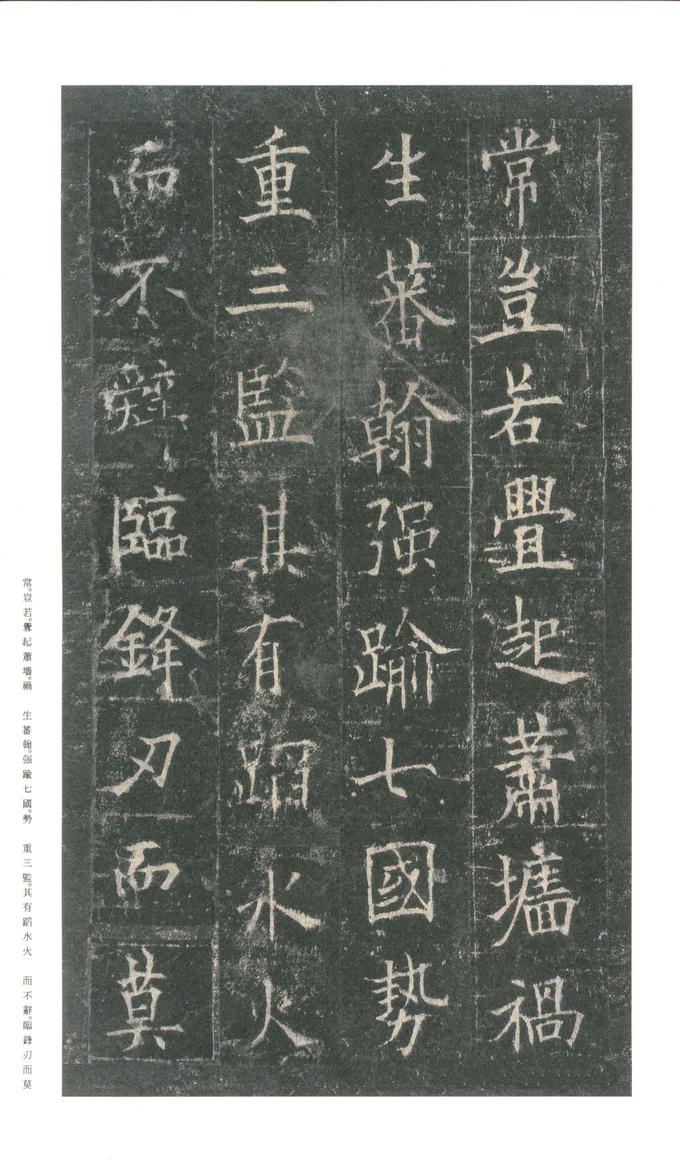 常豈若疊起蕭墻禍
生蕃翰强踰七國勢
重三監其有蹈水火
而不辭臨鋒刃而莫
常。豈若疊起蕭墻。禍 生蕃翰。强踰七國。勢 重三監。其有蹈水火 而不辭。臨鋒刃而莫